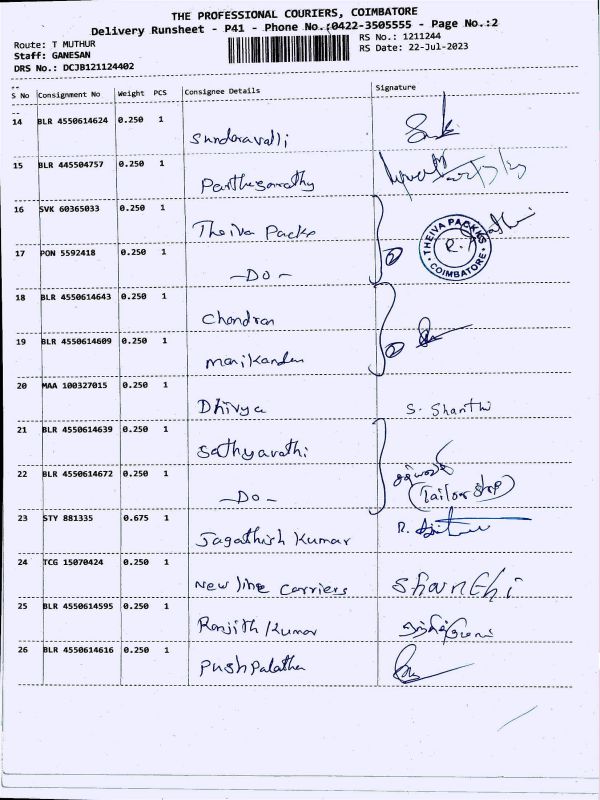 THE PROFESSIONAL COURIERS, COIMBATORE
Delivery Runsheet - P41 - Phone No.:0422-3505555 - Page No.:2
Route: T MUTHUR RS No.: 1211244
Staff: GANESAN RS Date: 22-Jul-2023
DRS No.: DCJB121124402
S No Consignment No Weight PCS Consignee Details Signature
14 BLR 4550614624 0.250 1
Sundaravalli
15 BLR 445504757 0.250 1
Parthasarathy
16 SVK 60365033 0.250 1
Theiva Packs
THEIVA PACKKS
COIMBATORE
17 PON 5592418 0.250 1
-DO-
18 BLR 4550614643 0.250 1
Chandran
19 BLR 4550614609 0.250 1
manikandan
20 MAA 100327015 0.250 1
Dhivya S. Shanthi
21 BLR 4550614639 0.250 1
Sathyavathi
22 BLR 4550614672 0.250 1
-DO- (Tailor Shop)
23 STY 881335 0.675 1
Jagathish Kumar
24 TCG 15070424 0.250 1
New line Carriers Shanthi
25 BLR 4550614595 0.250 1
Ranjith Kumar
26 BLR 4550614616 0.250 1
Pushpalatha